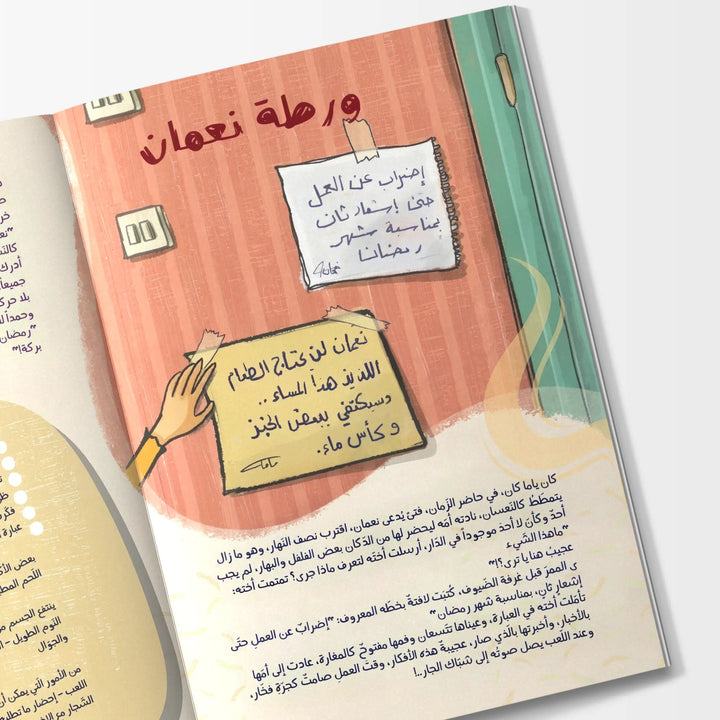 ورطة نعمان
إضراب عن العمل
حتى إشعار ثان
بمناسبة شهر
رمضان
نعمان
نعمان لن يحتاج الطعام
اللذيذ هذا المساء ..
وسيكتفي ببعض الخبز
وكأس ماء.
ماما
كان ياما كان، في حاضر الزّمان، فتىً يُدعى نعمان، اقترب نصف النّهار، وهو ما زال
يتمطّط كالنّعسان، نادته أمّه ليحضر لها من الدّكان بعض الفلفل والبهار، لم يجب
أحدٌ وكأنّ لا أحدَ موجوداً في الدّار، أرسلت أخته لتعرف ماذا جرى؟ تمتمت أخته:
"ماهذا الشّيء
عجيبٌ هنا يا ترى؟!"
ى الممرّ قبل غرفة الضّيوف، كُتبَت لافتةٌ بخطّه المعروف: "إضرابٌ عن العملِ حتّى
إشعارٍ ثانٍ، بمناسبة شهر رمضان"
تأمّلت أخته في العبارة، وعيناها تتّسعان وفمها مفتوحٌ كالمغارة، عادت إلى أمّها
بالأخبار، وأخبرتها بالّذي صار، عجيبةٌ هذه الأفكار، وقتَ العملِ صامتٌ كجرّة فخّار،
وعند اللّعب يصل صوتُه إلى شبّاك الجار..!
أدرك
جميعاً
بلا حركة
وحمداً لله
"رمضان
بركة!"
عبارة
بعض الأك
اللّحم المط
ينتفع الجسم م
النّوم الطويل - ال
والجوّال
من الأمور الّتي يمكن أن
اللعب - إحضار ما تطلبه
الشّجار مع الإخ